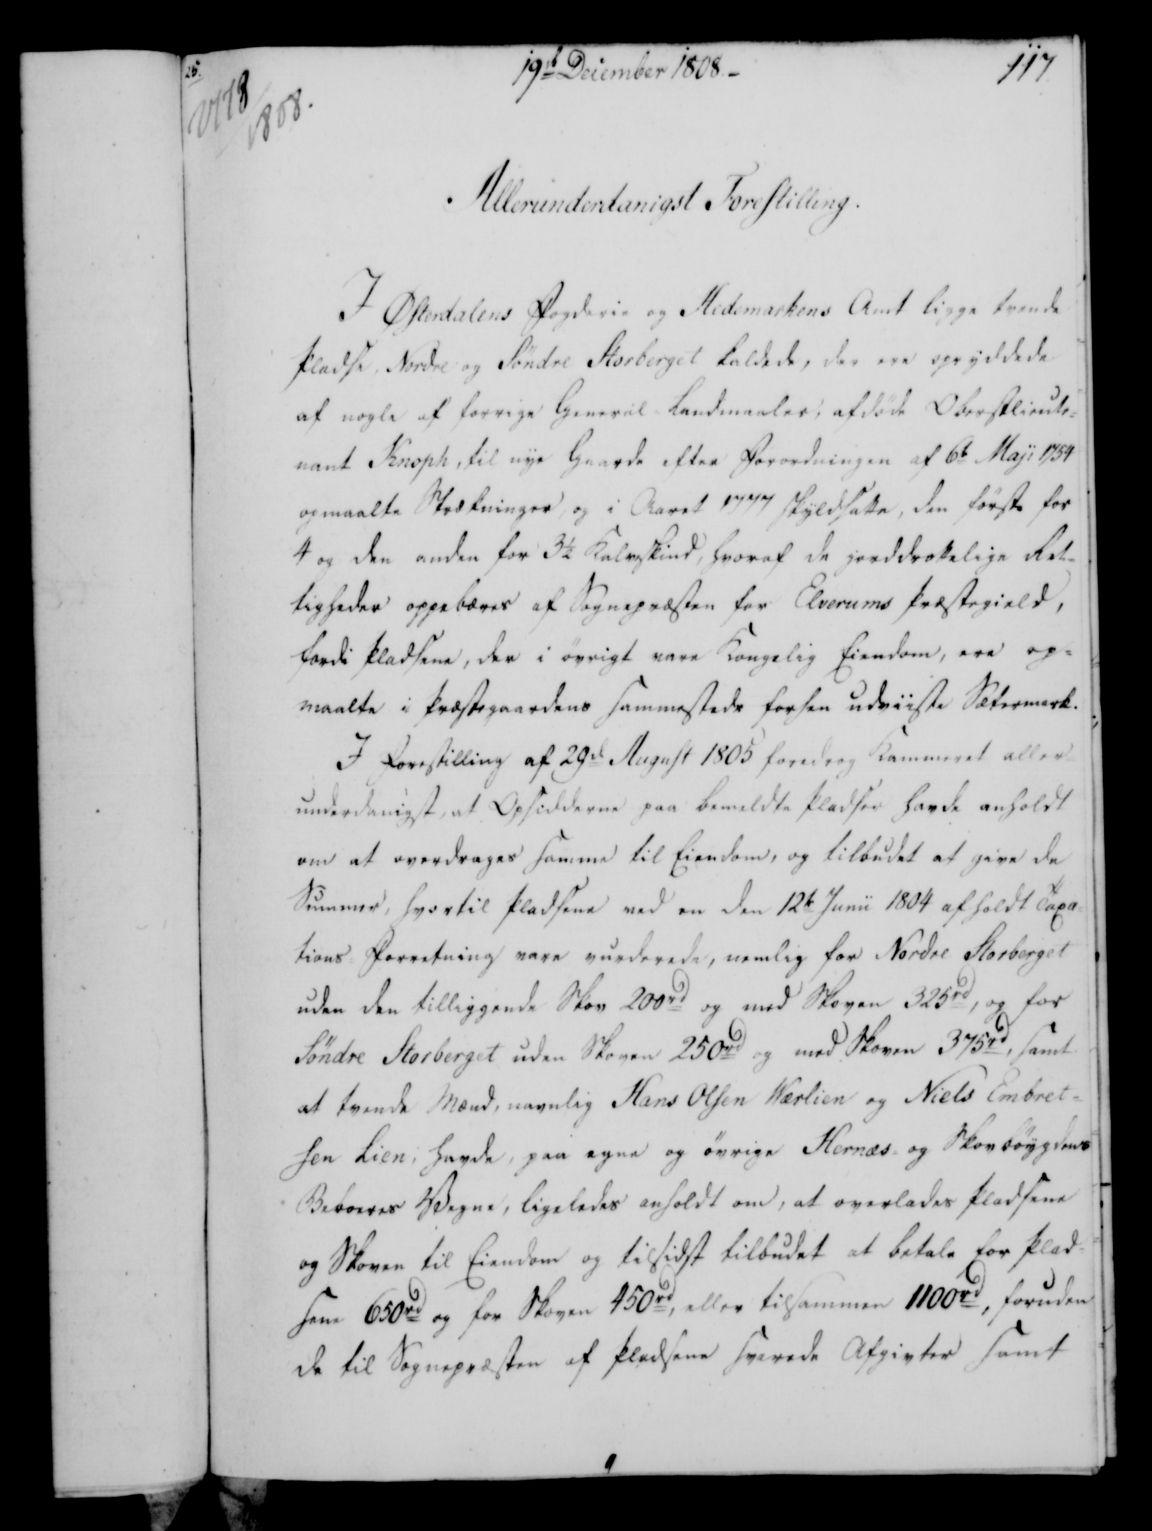 25.
19d. December 1808.-
117
1808.
Allerunderdanigst Forestilling.
I Østerdalens Fogderie og Hedemarkens Amt ligge tvende
Pladse, Nordre og Söndre Storberget kaldede, der ere opryddede
af nogle af forrige General-Landmaaler, afdöde Oberstlieute-
nant Knoph, til nye Gaarde efter Forordningen af 6te Maji 1754
opmaalte Strækninger, og i Aaret 1777 skyldsatte, den förste for
4 og den anden for 3½ Kalvskind, hvoraf de jorddrottelige Ret-
tigheder oppebæres af Sognepræsten for Elverums Præstegield,
fordi Pladsene, der i övrigt vare Kongelig Eiendom, ere op-
maalte i Præstegaardens sammesteds forhen udviiste Sætermark.
I Forestilling af 29de August 1805 foredrog Kammeret aller-
underdanigst, at Opsidderne paa bemeldte Pladser havde anholdt
om at overdrages samme til Eiendom, og tilbudet at give de
Summer, hvortil Pladsene ved en den 12te Junii 1804 afholdt Taxa-
tions-Forretning vare vurderede, nemlig for Nordre Storberget
uden den tilliggende Skov 200rd og med Skoven 325rd, og for
Söndre Storberget uden Skoven 250rd og med Skoven 375rd, samt
at tvende Mænd, navnlig Hans Olsen Wærlien og Niels Embret-
sen Lien, havde, paa egne og övrige Hernæs- og Skovböygdens
Beboeres Vegne, ligeledes anholdt om, at overlades Pladsene
og Skoven til Eiendom og tilsidst tilbudet at betale for Plad-
sene 650rd og for Skoven 450rd, eller tilsammen 1100rd, foruden
de til Sognepræsten af Pladsene svarede Afgivter samt